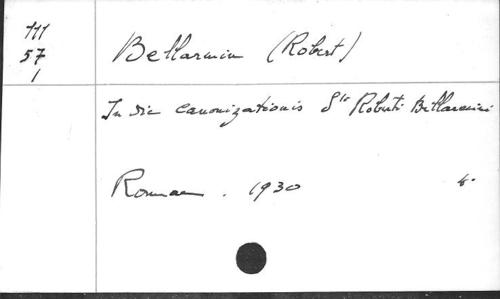 111
57
1
Bellarmin (Robert)
In die canonizationis Sti Roberti Bellarmini
Romae. 1930